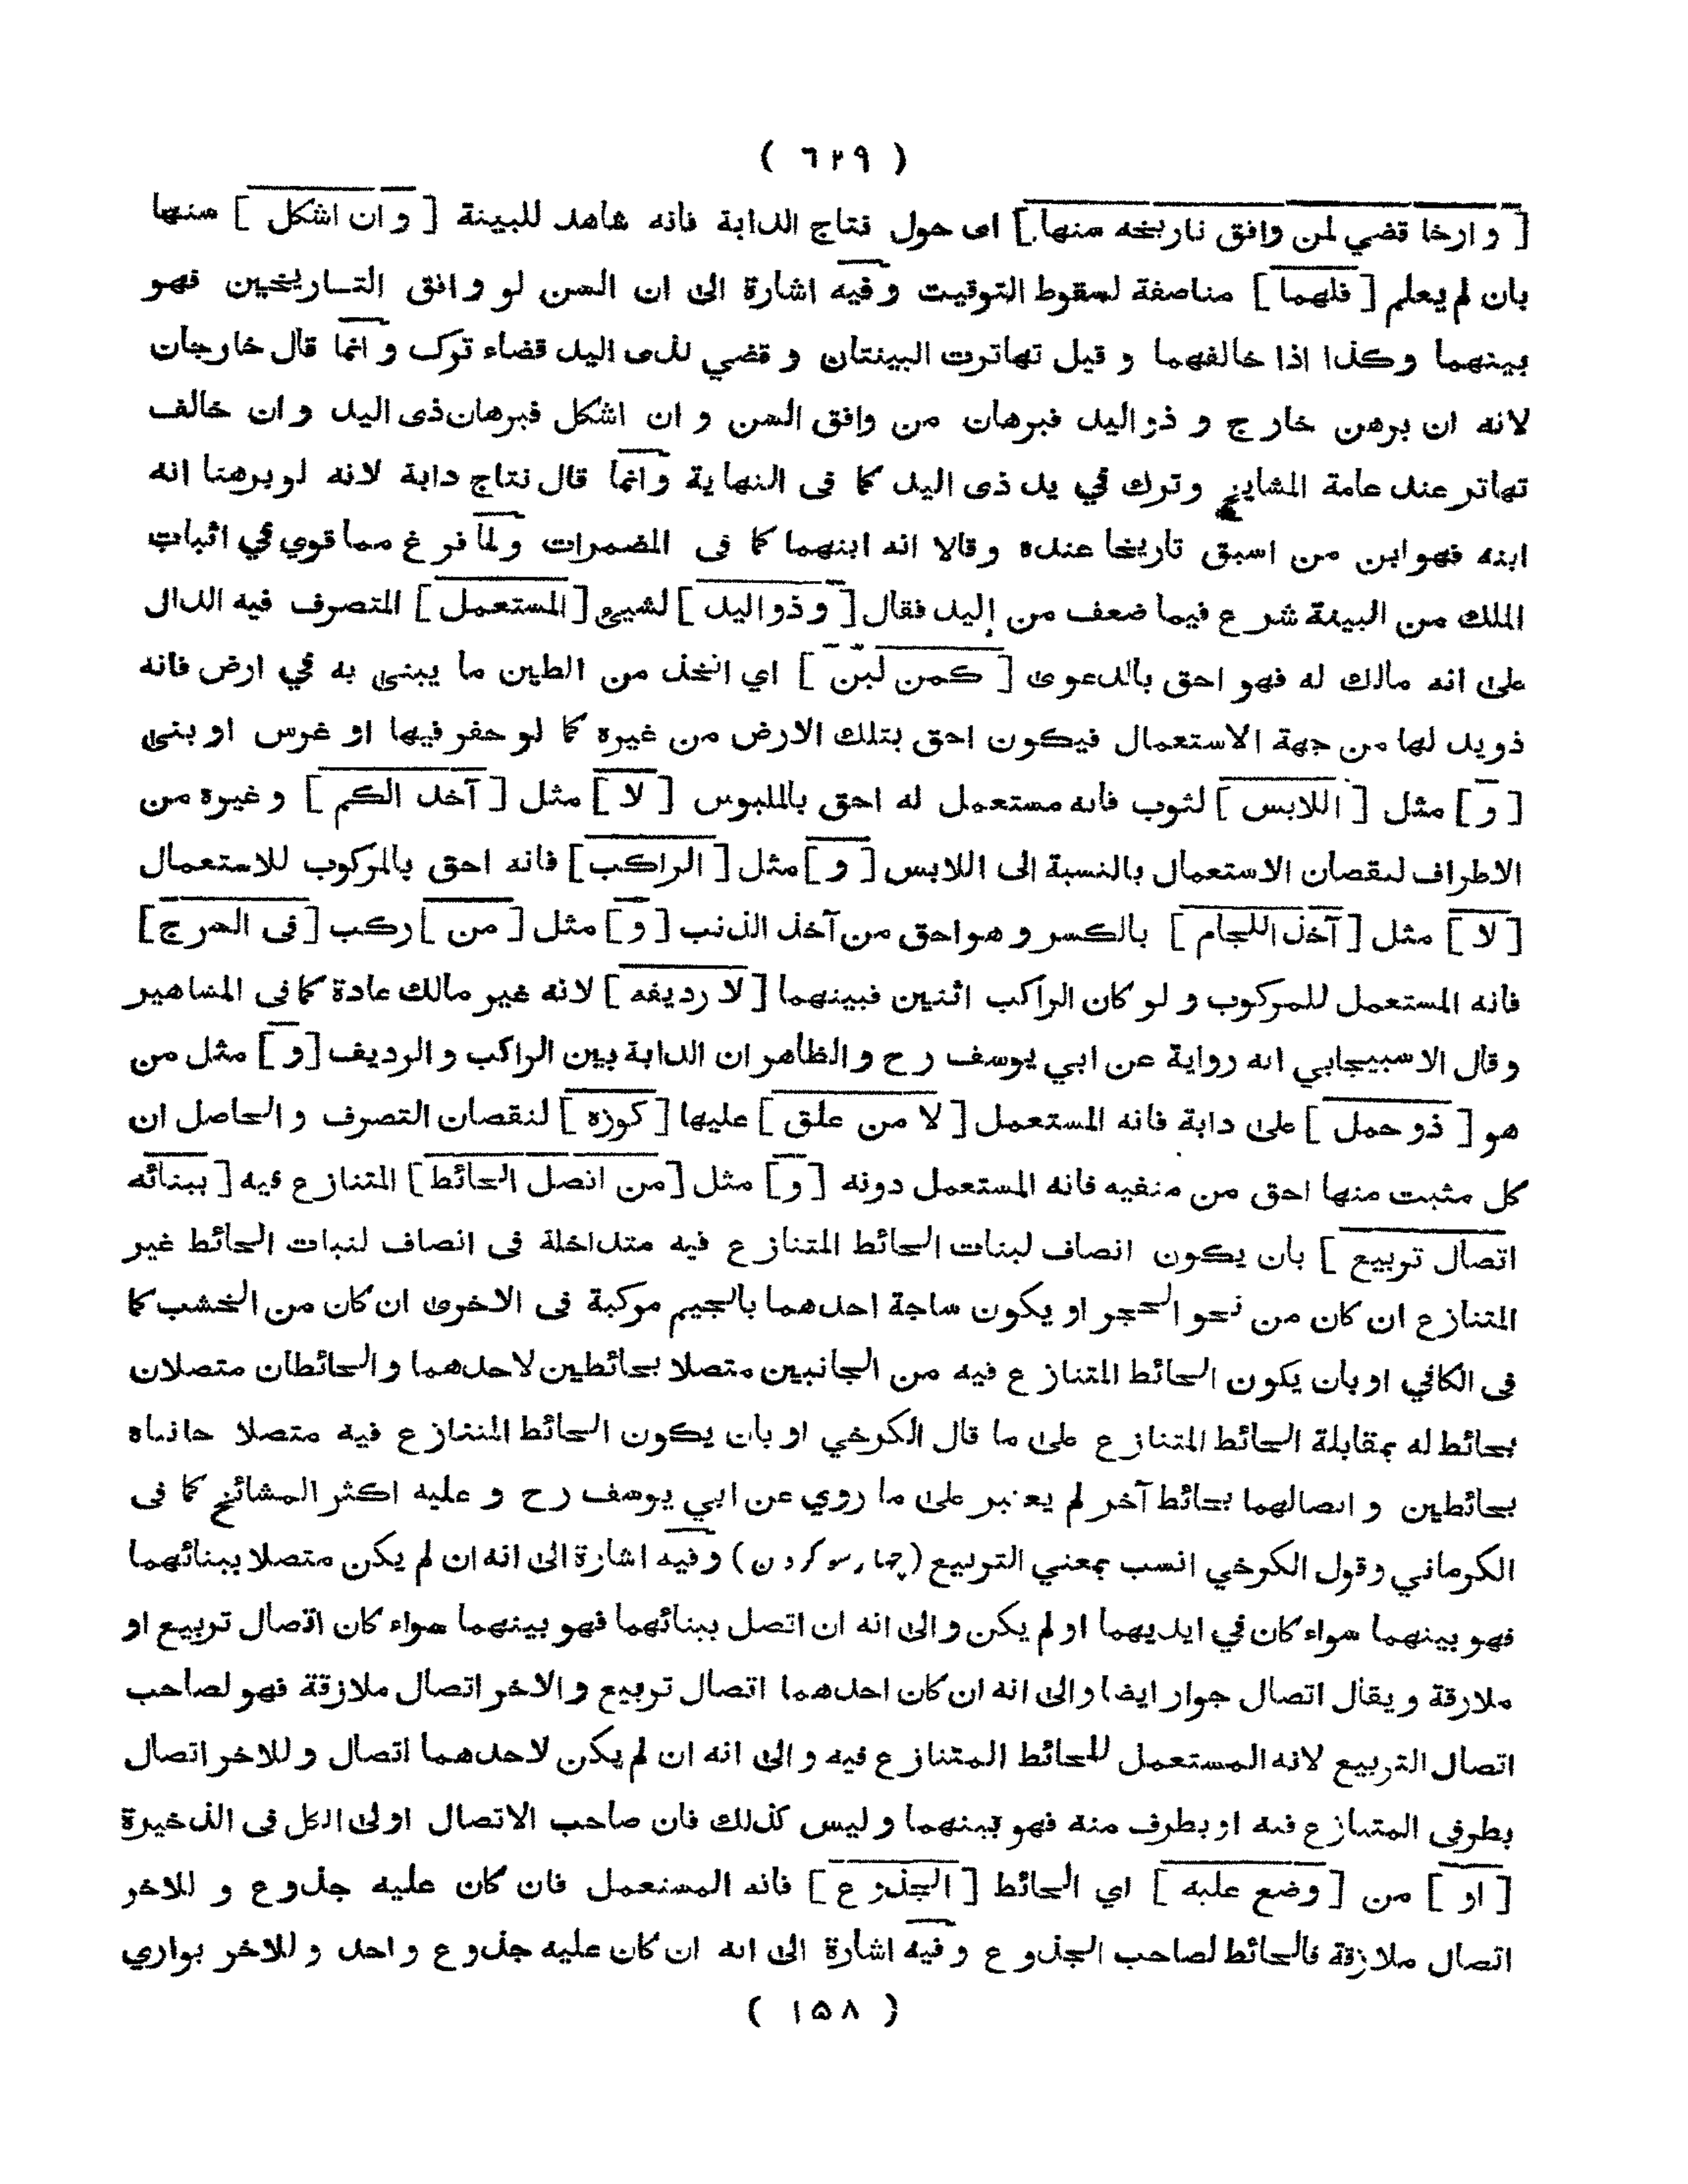 ( ٦٢٩ )
[ و ارخا قضي لمن وافق تاريخه سنها ] اى حول نتاج الدابة فانه شاهد للبينة [ و ان اشكل ] سنها
بان لم يعلم [ فلهما ] مناصفة لسقوط التوقيت وفيه اشارة الى ان السن لو وافق التـاريخين فهو
بينهما وكذا اذا خالفهما و قيل تهاترت البينتان و قضي لذى اليد قضاء ترك و انما قال خارجان
لانه ان برهن خارج و ذو اليد فبرهان من وافق السن و ان اشكل فبرهان ذى اليد و ان خالف
تهاتر عند عامة المشايخ و ترك في يد ذى اليد كما فى النهاية و انما قال نتاج دابة لانه لو برهنا انه
ابنه فهو ابن من اسبق تاريخا عنده و قالا انه ابنهما كما فى المضمرات و لما فرغ مما قوي في اثبات
الملك من البينة شرع فيما ضعف من اليد فقال [ و ذو اليد ] لشيئ [ المستعمل ] المتصرف فيه الدال
على انه مالك له فهو احق بالدعوى [ كمن لبن ] اي اتخذ من الطين ما يبنى به في ارض فانه
ذو يد لها من جهة الاستعمال فيكون احق بتلك الارض من غيره كما لو حفر فيها او غرس او بنى
[ و ] مثل [ اللابس ] لثوب فانه مستعمل له احق بالملبوس [ لا ] مثل [ آخذ الكم ] و غيره من
الاطراف لنقصان الاستعمال بالنسبة الى اللابس [ و ] مثل [ الراكب ] فانه احق بالمركوب للاستعمال
[ لا ] مثل [ آخذ اللجام ] بالكسر و هو احق من آخذ الذنب [ و ] مثل [ من ] ركب [ فى السرج ]
فانه المستعمل للمركوب و لو كان الراكب اثنين فبينهما [ لا رديفه ] لانه غير مالك عادة كما فى المشاهير
و قال الاسبيجابي انه رواية عن ابي يوسف رح و الظاهر ان الدابة بين الراكب و الرديف [ و ] مثل من
هو [ ذو حمل ] على دابة فانه المستعمل [ لا من علق ] عليها [ كوزه ] لنقصان التصرف و الحاصل ان
كل مثبت منها احق من منفيه فانه المستعمل دونه [ و ] مثل [ من اتصل الحائط ] المتنازع فيه [ ببنائه
اتصال تربيع ] بان يكون انصاف لبنات الحائط المتنازع فيه متداخلة فى انصاف لنبات الحائط غير
المتنازع ان كان من نحو الحجر او يكون ساجة احدهما بالجيم مركبة فى الاخرى ان كان من الخشب كما
فى الكافي او بان يكون الحائط المتنازع فيه من الجانبين متصلا بحائطين لاحدهما و الحائطان متصلان
بحائط له بمقابلة الحائط المتنازع على ما قال الكرخي او بان يكون الحائط المتنازع فيه متصلا جانباه
بحائطين و اتصالهما بحائط آخر لم يعتبر على ما روي عن ابي يوسف رح و عليه اكثر المشائخ كما فى
الكرماني و قول الكرخي انسب بمعني التربيع (چهار سو كردن) و فيه اشارة الى انه ان لم يكن متصلا ببنائهما
فهو بينهما سواء كان في ايديهما او لم يكن و الى انه ان اتصل ببنائهما فهو بينهما سواء كان اتصال تربيع او
ملازقة و يقال اتصال جوار ايضا و الى انه ان كان احدهما اتصال تربيع و الاخر اتصال ملازقة فهو لصاحب
اتصال التربيع لانه المستعمل للحائط المتنازع فيه و الى انه ان لم يكن لاحدهما اتصال و للاخر اتصال
بطرفى المتنازع فيه او بطرف منه فهو بينهما و ليس كذلك فان صاحب الاتصال اولى الكل فى الذخيرة
[ او ] من [ وضع عليه ] اي الحائط [ الجذوع ] فانه المستعمل فان كان عليه جذوع و للاخر
اتصال ملازقة فالحائط لصاحب الجذوع و فيه اشارة الى انه ان كان عليه جذوع واحد و للاخر بواري
( ١٥٨ )